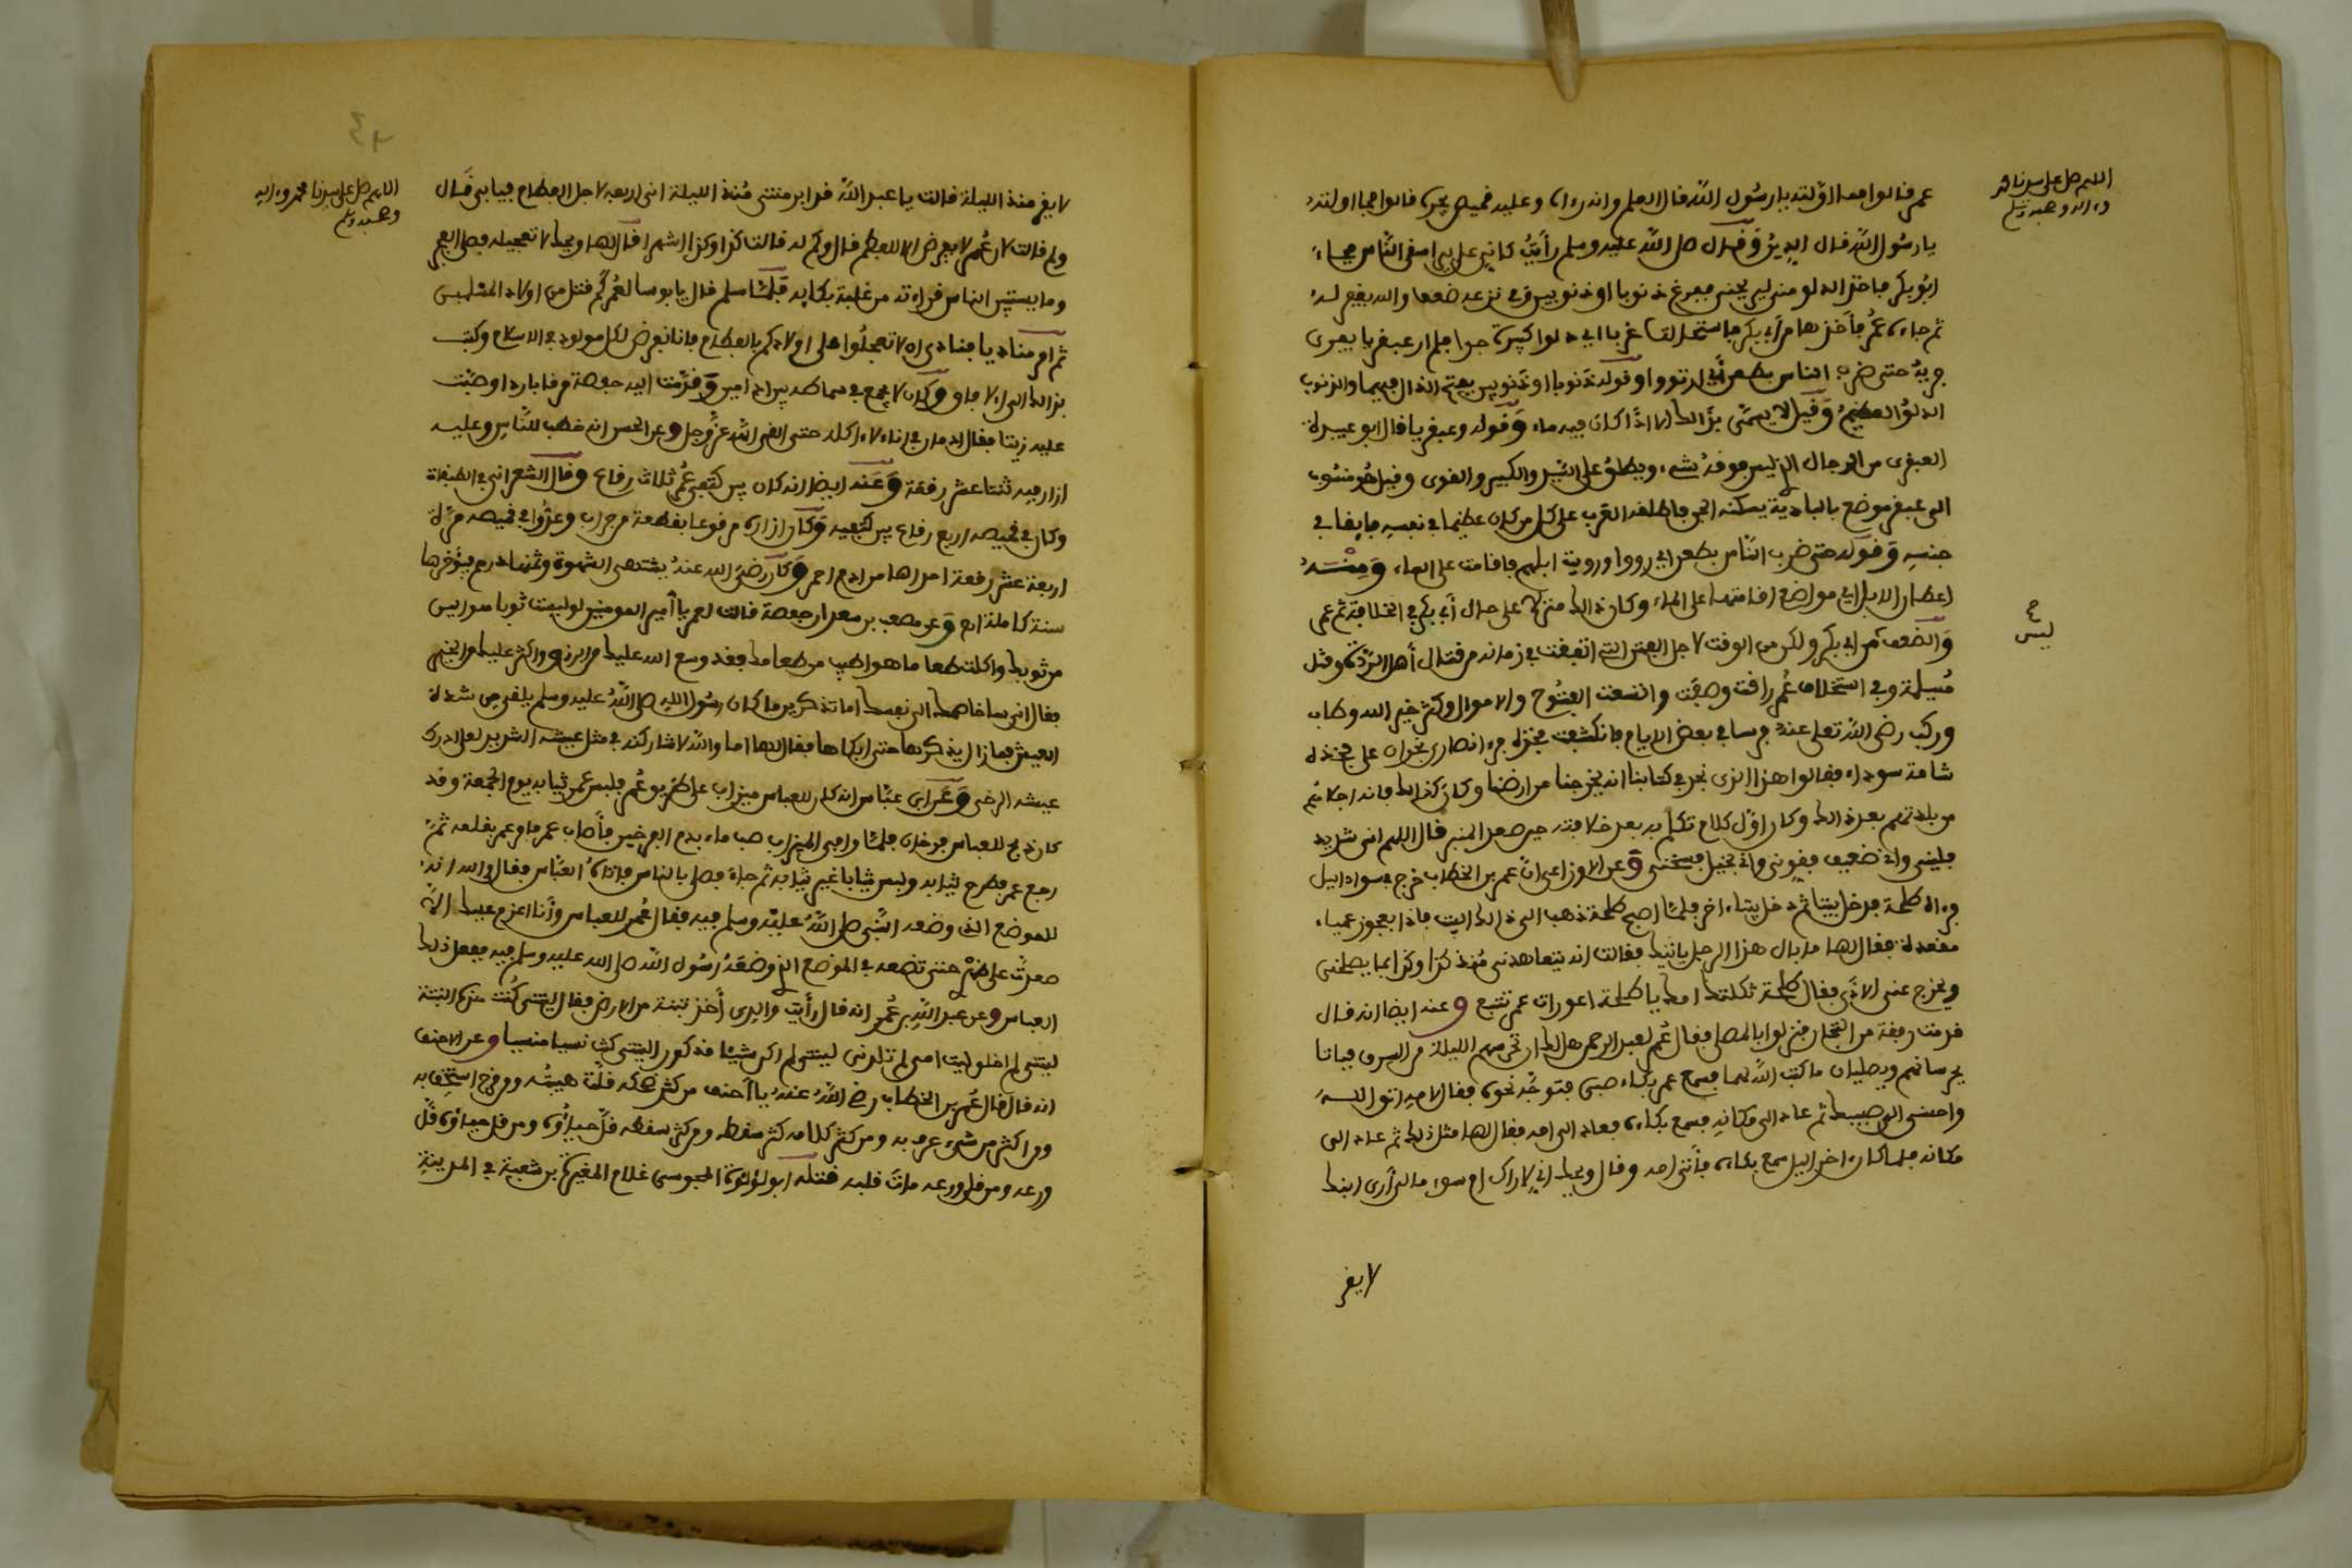 اللهم صل على سيدنا محمد
وءاله وصحبه وسلم
عمر قالوا فما اولته يا رسول الله قال العلم وانه رءاه وعليه قميص يجره قالوا فما اولته
يا رسول الله قال الدين وقال صلى الله عليه وسلم رأيت كأني على بير اسقي الناس فجاء
ابو بكر فأخذ الدلو مني ليريحني فنزع ذنوبا او ذنوبين وفي نزعه ضعف والله يغفر له
ثم جاء عمر فأخذها من أبي بكر فاستحالت غربا اي دلوا كبيرة جدا فلم ار عبقريا يفري
فريه حتى ضرب الناس بعطن أي ارتووا وقوله ذنوبا او ذنوبين بفتح الذال فيهما والذنوب
الدلو العظيم وقيل لا يسمى بذالك الا اذا كان فيه ماء وقوله وعبقريا قال ابو عبيدة
العبقري من الرجال الذي ليس فوقه شيء ويطلق على السيد والكبير والقوي وقيل هو منسوب
الى عبقر موضع بالبادية يسكنه الجن فاطلقه العرب على كل من كان عظيما في نفسه فايقا في
جنسه وقوله حتى ضرب الناس بعطن اي رووا ورويت ابلهم فاقامت على الماء ومنه
اعطان الابل اي مواضع اقامتها على الماء وكان ذالك منزلا على حال أبي بكر في الخلافة ثم عمر
والضعف من ابي بكر ولكن من الوقت لاجل الفتن التي اتفقت في زمانه من قتال أهل الردة وقتل
لبس
مسيلمة وفي استخلاف عمر راقت وصفت واتسعت الفتوح والاموال وكثر خير الله وطاب
وركب رضي الله تعلى عنه فرسا في بعض الايام فانكشفت فخذه فرءا نصارى نجران على فخذه
شامة سوداء فقالوا هذا الذي نجد في كتابنا انه يخرجنا من ارضنا وكان كذالك فانه اجلاهم
من بلادهم بعد ذالك وكان اول كلام تكلم به بعد خلافته حين صعد المنبر قال اللهم اني شديد
فليني واني ضعيف فقوني واني بخيل فسخني وعن الاوزاعي ان عمر بن الخطاب خرج في سواد اليل
فرءاه طلحة فدخل بيتا ثم دخل بيتا ءاخر فلما اصبح طلحة ذهب الى ذالك البيت فاذا بعجوز عمياء
مقعدة فقال لها ما بال هذا الرجل ياتيك فقالت انه يتعاهدني منذ كذا وكذا بما يصلحني
ويخرج عني الاذى فقال طلحة ثكلتك امك يا طلحة اعورات عمر تتبع وعنه ايضا انه قال
قدمت رفقة من التجار فنزلوا بالمصلى فقال عمر لعبد الرحمن هل لك ان تحرسهم الليلة من السرق فباتا
يحرسانهم ويصليان ما كتب الله لهما فسمع عمر بكاء صبي فتوجه نحوه فقال لامه اتق الله
واحسني الى صبيك ثم عاد الى مكانه فسمع بكاءه فعاد الى امه فقال لها مثل ذلك ثم عاد الى
مكانه فلما كان ءاخر اليل سمع بكاءه فأتى امه وقال ويحك اني لاراك ام سوء مالي أرى ابنك
لا يقر
اللهم صل على سيدنا محمد وءاله
وصحبه وسلم
لا يقر منذ الليلة قالت يا عبد الله قد ابرمتني منذ الليلة اني اريغه لاجل الفطام فيابى قال
ولم قالت لان عمر لا يفرض الا للفطم قال وكم له قالت كذا وكذا اشهرا قال لها ويحك لا تعجليه فصلى الفجر
وما يستبين الناس قراءته من غلبة بكايه فلما سلم قال يا بوسا لعمر كم قتل من اولاد المسلمين
ثم امر مناديا ينادي الا لا تعجلوا على اولادكم بالفطام فانا نفرض لكل مولود في الاسلام وكتب
بذالك الى الافاق وكان لا يجمع في سماطه بين ادامين وقدمت اليه حفصة مرقا باردا وصبت
عليه زيتا فقال ادمان في اناء لا ءاكله حتى القى الله عز وجل وعن الحسن انه خطب الناس وعليه
ازار فيه ثنتا عشر رقعة وعنه ايضا انه كان بين كتفي عمر ثلاث رقاع وقال الشعراني في الطبقات
وكان في قميصه اربع رقاع بين كتفيه وكان ازاره مرقوعا بقطعة من جراب وعدوا في قميصه مرة
اربعة عشر رقعة احداها من ادم احمر وكان رضي الله عنه يشتهي الشهوة وثمنها درهم فيؤخرها
سنة كاملة وعن مصعب بن سعد ان حفصة قالت لعمر يا أمير المومنين لو لبست ثوبا هو الين
من ثوبك واكلت طعاما هو اطيب من طعامك فقد وسع الله عليك من الرزق واكثر عليك من الخير
فقال اني ساخاصمك الى نفسك اما تذكرين ما كان رسول الله صلى الله عليه وسلم يلقى من شدة
العيش فما زال يذكرها حتى ابكاها فقال لها اما والله لاشاركنه في مثل عيشه الشديد لعلي ادرك
عيشه الرخي وعن ابن عباس انه كان للعباس ميزاب على طريق عمر فلبس عمر ثيابه يوم الجمعة وقد
كان ذبح للعباس فرخان فلما وافى الميزاب صب ماء بدم الفرخين فأصاب عمر فامر عمر بقلعه ثم
رجع عمر فطرح ثيابه ولبس ثيابا غير ثيابه ثم جاء فصلى بالناس فاتاه العباس فقال والله انه
للموضع الذي وضعه النبي صلى الله عليه وسلم فيه فقال عمر للعباس وأنا اعزم عليك الا
صعدت على ظهري حتى تضعه في الموضع الذي وضعه رسول الله صلى الله عليه وسلم فيه ففعل ذلك
العباس وعن عبد الله بن عمر انه قال رأيت والدي أخذ تبنة من الارض فقال ليتني كنت هذه التبنة
ليتني لم اخلق ليت امي لم تلدني ليتني لم اكن شيئا مذكورا ليتني كنت نسيا منسيا وعن الاحنف
انه قال قال عمر بن الخطاب رضي الله عنه يا أحنف من كثر ضحكه قلت هيبته ومن مزح استخف به
ومن اكثر من شيء عرف به ومن كثر كلامه كثر سقطه ومن كثر سقطه قل حياؤه ومن قل حياؤه قل
ورعه ومن قل ورعه مات قلبه قتله ابو لؤلؤة المجوسي غلام المغيرة بن شعبة في المدينة